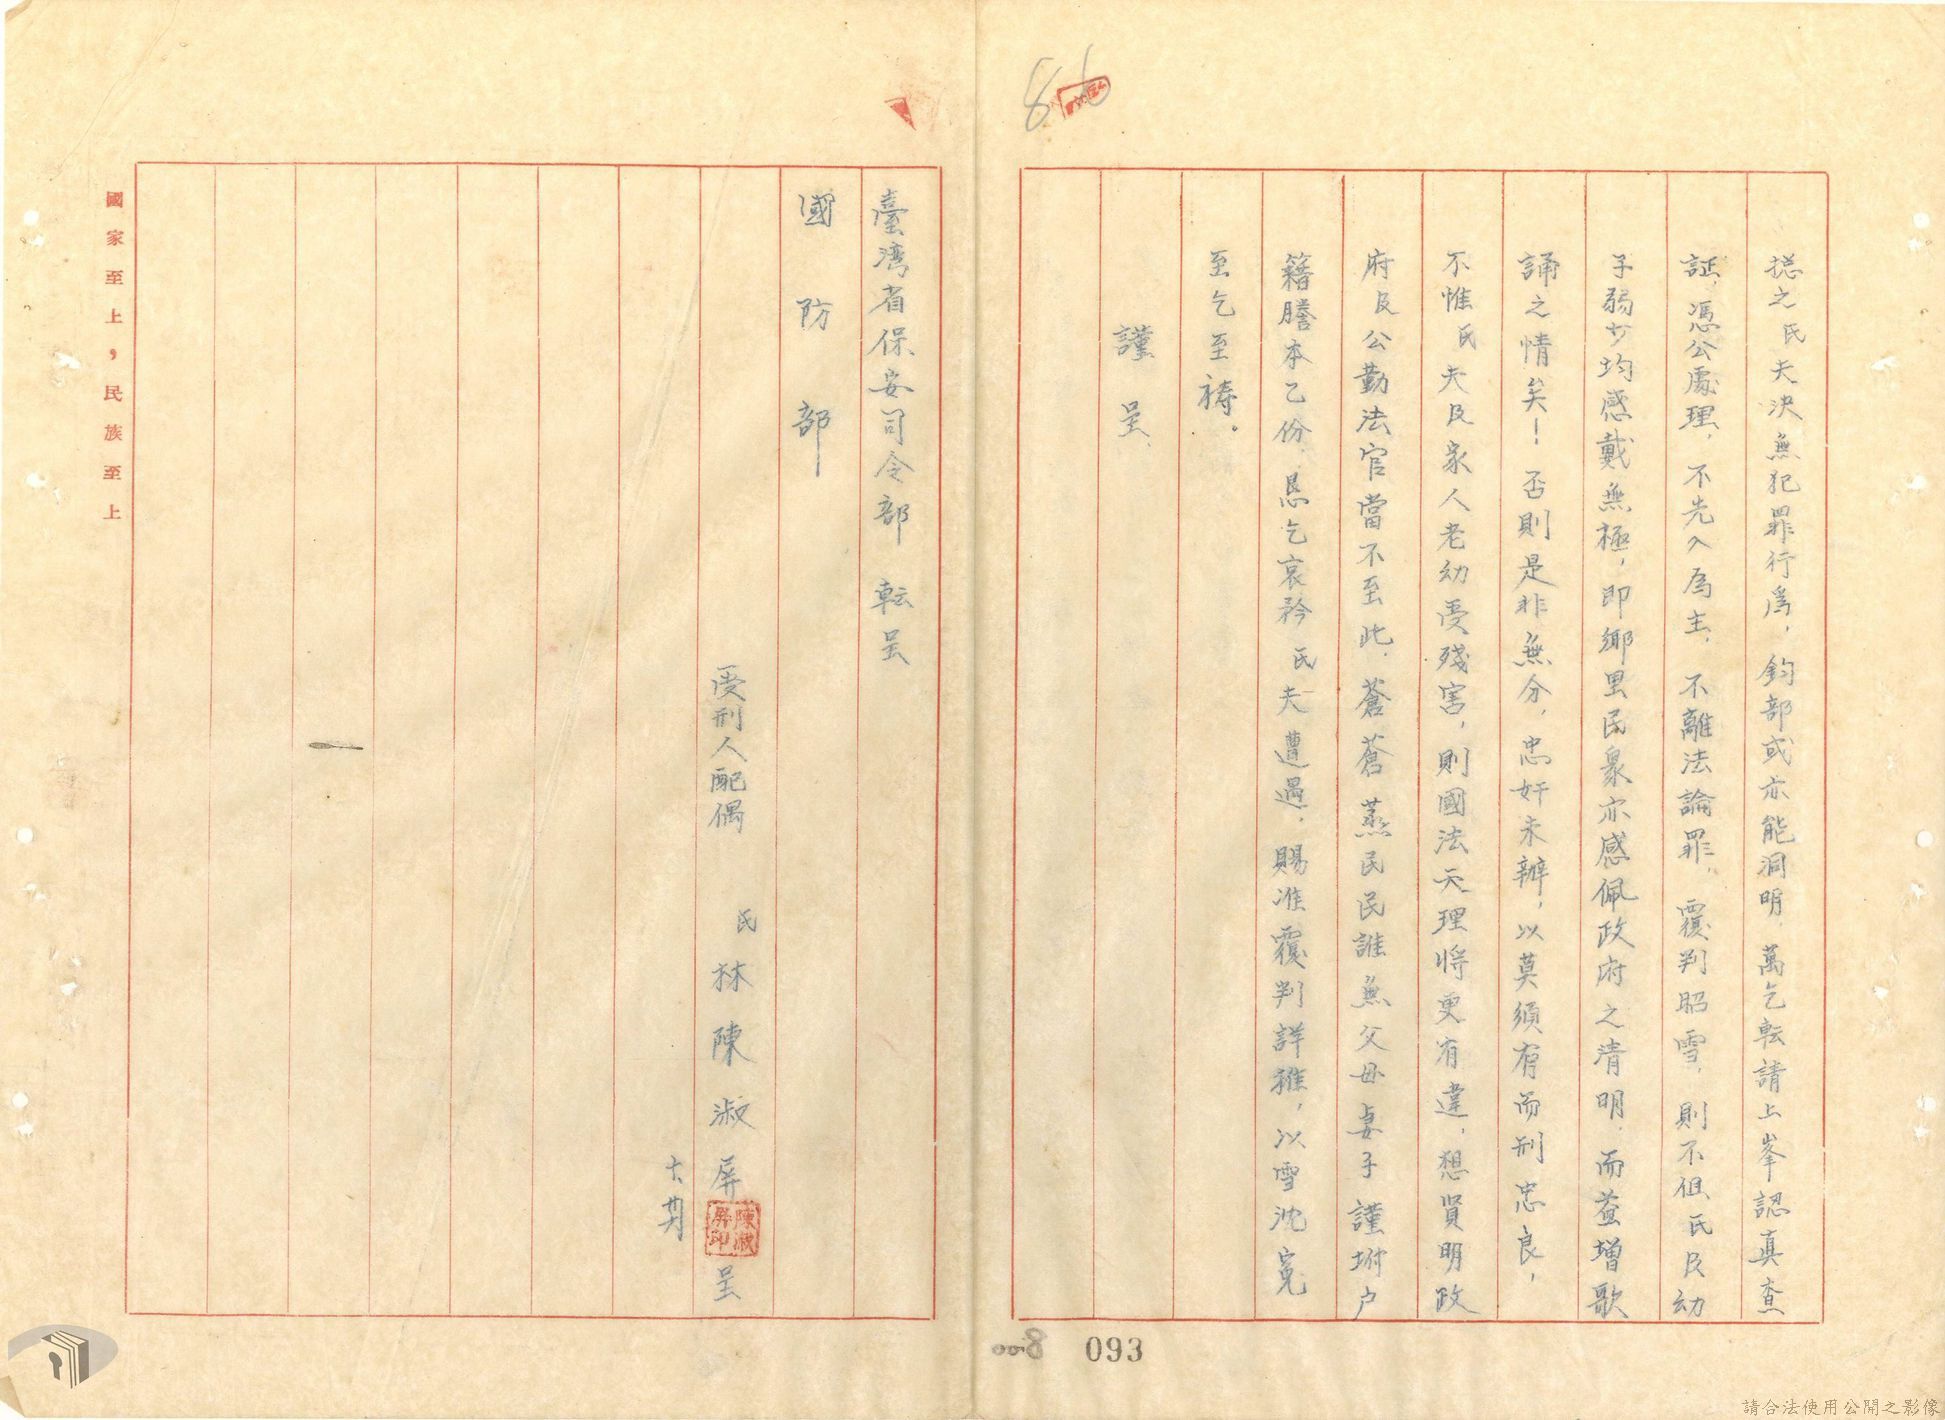 捴之氏夫決無犯罪行為，鈞部或亦能洞明，萬乞転請上峯認真查
証，憑公處理，不先入為主，不離法論罪，覆判昭雪，則不但氏及幼
子弱女均感戴無極，即鄉里民眾亦感佩政府之清明，而益增歌
誦之情矣！否則是非無分，忠奸未辦，以莫須有而刑忠良，
不惟氏夫及家人老幼受殘害，則國法天理將更有違，想賢明政
府及公勤法官當不至此，蒼蒼蒸民民誰無父母妻子謹坿户
籍謄本乙份，恳乞哀矜氏夫遭遇，賜准覆判詳雅，以雪沈冤
至乞至禱。
謹呈
臺湾省保安司令部 転呈
國防部
受刑人配偶 氏林陳淑屏 呈
陳淑屏印
國家至上，民族至上
86
093
請合法使用公開之影像